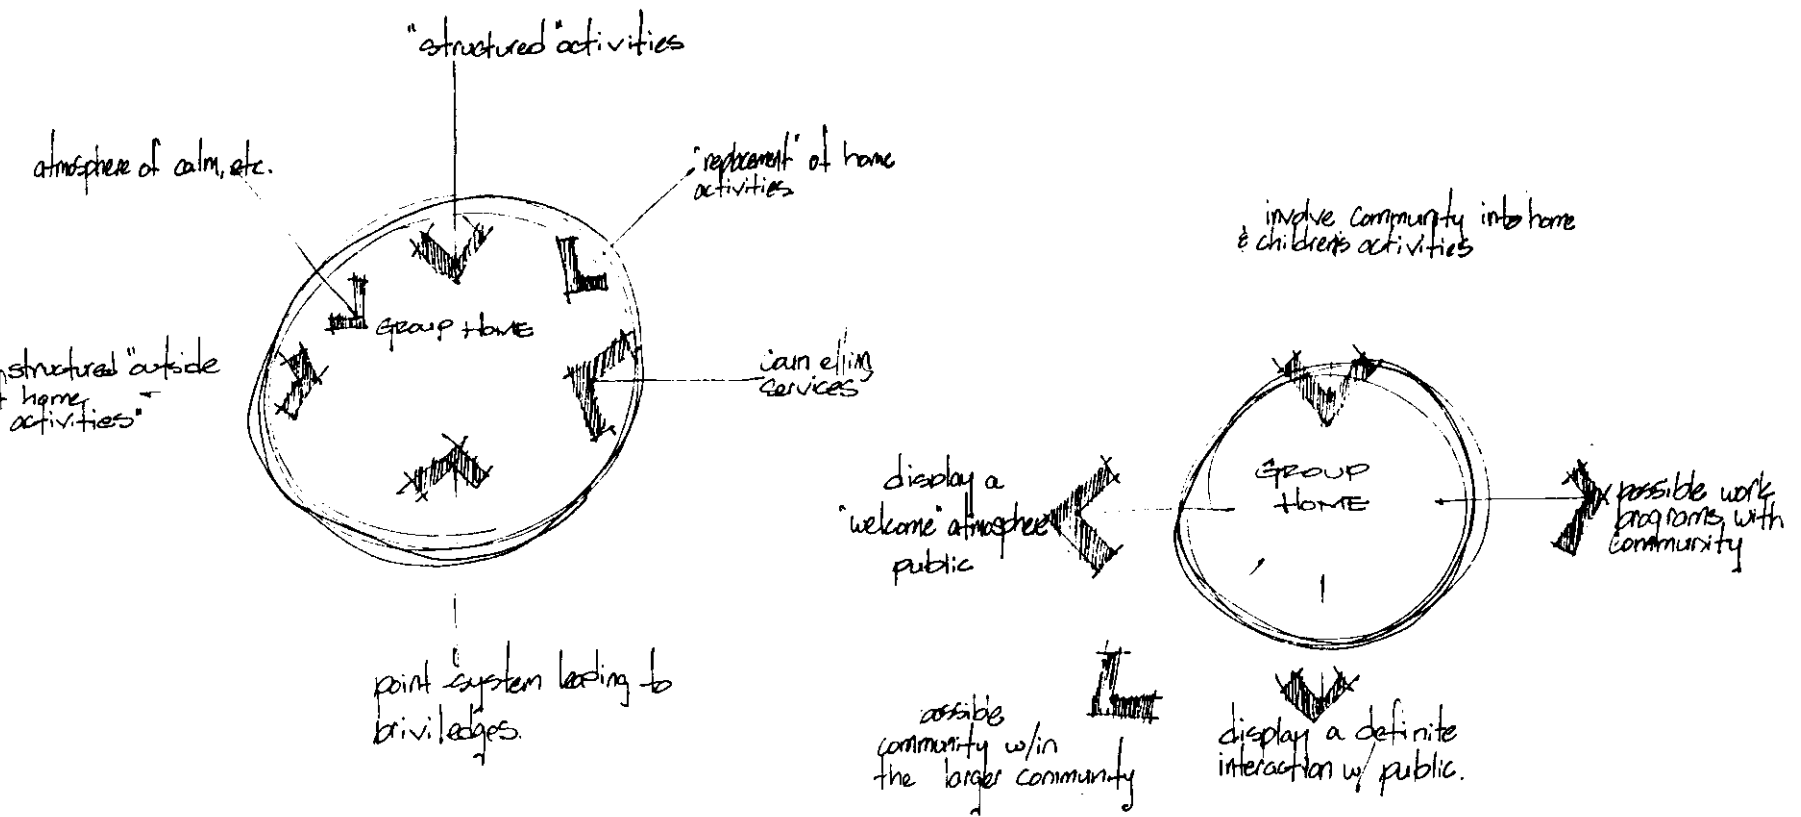 "structured" activities
atmosphere of calm, etc.
"replacement" of home
activities
GROUP HOME
structured "outside
home
activities"
services
point system leading to
priviledges.
involve community into home
& children's activities
GROUP
HOME
display a
"welcome" atmosphere
public
possible work
programs with
community
possible
community w/in
the larger community
display a definite
interaction w/ public.